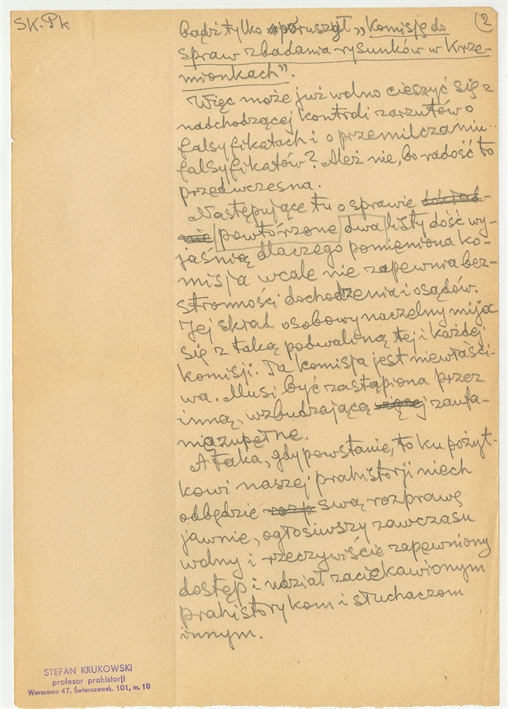 SK.Pk
2
bądź tylko poruszył „Komisję do
spraw zbadania rysunków w Krze-
mionkach”.
Więc może już wolno cieszyć się z
nadchodzącej kontroli zarzutów o
falsyfikatach i o przemilczaniu
falsyfikatów? Ależ nie, bo radość to
przedwczesna.
Następujące tu o sprawie
powtórzone dwa listy dość wy-
jaśnią dlaczego pomieniona ko-
misja wcale nie zapewnia bez-
stronności dochodzenia i osądów.
Jej skład osobowy naczelny mija
się z taką podwaliną tej i każdej
komisji. Ta komisja jest niewłaści-
wa. Musi być zastąpiona przez
inną, wzbudzającą zaufa-
nie zupełne.
A taka, gdy powstanie, to ku pożyt-
kowi naszej prahistorji niech
odbędzie swą rozprawę
jawnie, ogłosiwszy zawczasu
wolny i rzeczywiście zapewniony
dostęp i udział zaciekawionym
prahistorykom i słuchaczom
innym.
STEFAN KRUKOWSKI
profesor prahistorji
Warszawa 47, Świerczewsk. 101, m. 10